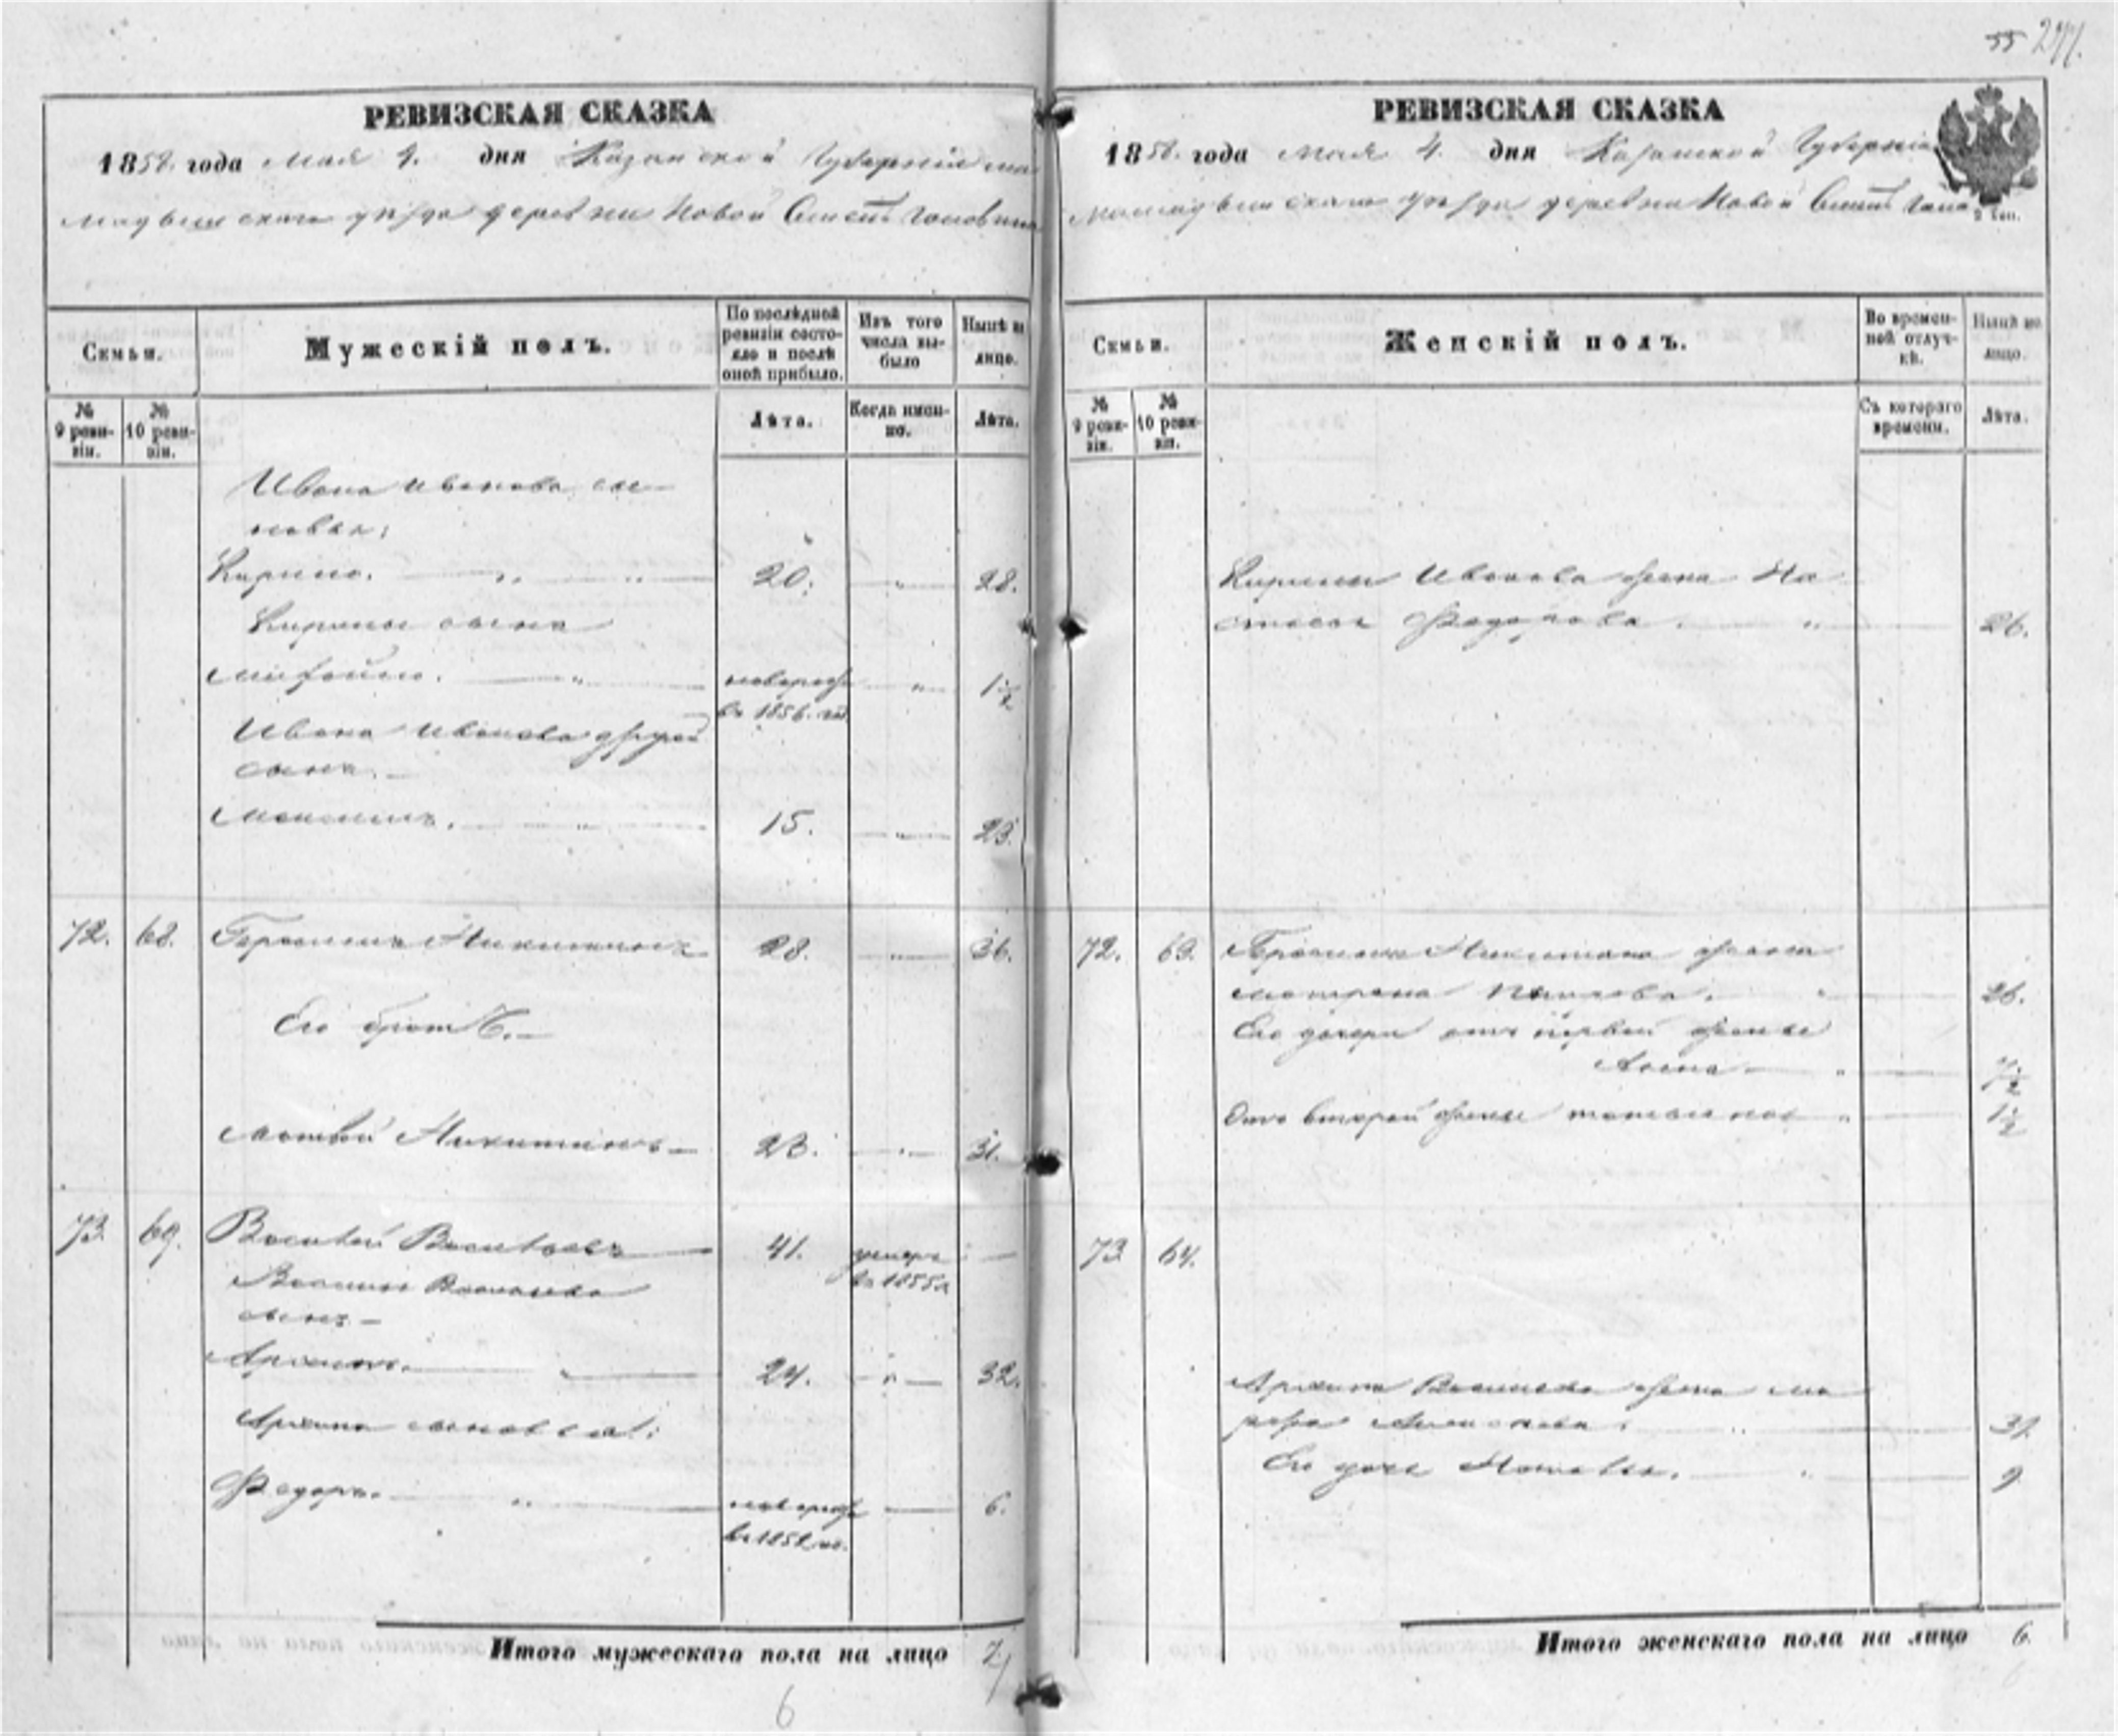 55 277.
РЕВИЗСКАЯ СКАЗКА
1858. года Мая 4. дня Казанской Губернiи Ма
мадышскаго уѣзда деревни Новой
Семьи.
Мужескiй полъ.
По послѣдней ревизiи состояло и послѣ оной прибыло.
Изъ того числа выбыло
Нынѣ на лицо.
№ 9 ревизiи.
№ 10 ревизiи.
Лѣта.
Когда именно.
Лѣта.
Ивана Иванова сы
новья:
Кирило. 20. 28.
Кирилы сынъ
новорож 1 1/2
въ 1856. г.
Ивана Иванова другой
сынъ.
15. 23.
72. 68. Герасимъ Никитинъ 28. 36.
Его братъ.
Матвѣй Никитинъ 23. 31.
73. 69. Василiй Васильевъ 41. умеръ
въ 1855
Василья Васильева
сынъ
Архипъ. 24. 32.
Архипа сыновья:
Федоръ. новорож 6.
въ 1852
Итого мужескаго пола на лицо 7
6
РЕВИЗСКАЯ СКАЗКА
1858. года Мая 4. дня Казанской Губернiи
Мамадышскаго уѣзда деревни Новой
Семьи.
Женскiй полъ.
Во временной отлучкѣ.
Нынѣ на лицо.
№ 9 ревизiи.
№ 10 ревизiи.
Съ котораго времени.
Лѣта.
Кирилы Иванова жена На
стасья Федорова. 26.
72. 68. Герасима Никитина жена
Матрена 26.
Его дочери отъ первой жены
Анна 7 1/2
Отъ второй жены 1 1/2
73 69.
Архипа Васильева жена Ма
рфа
Его дочь 9.
Итого женскаго пола на лицо 6.